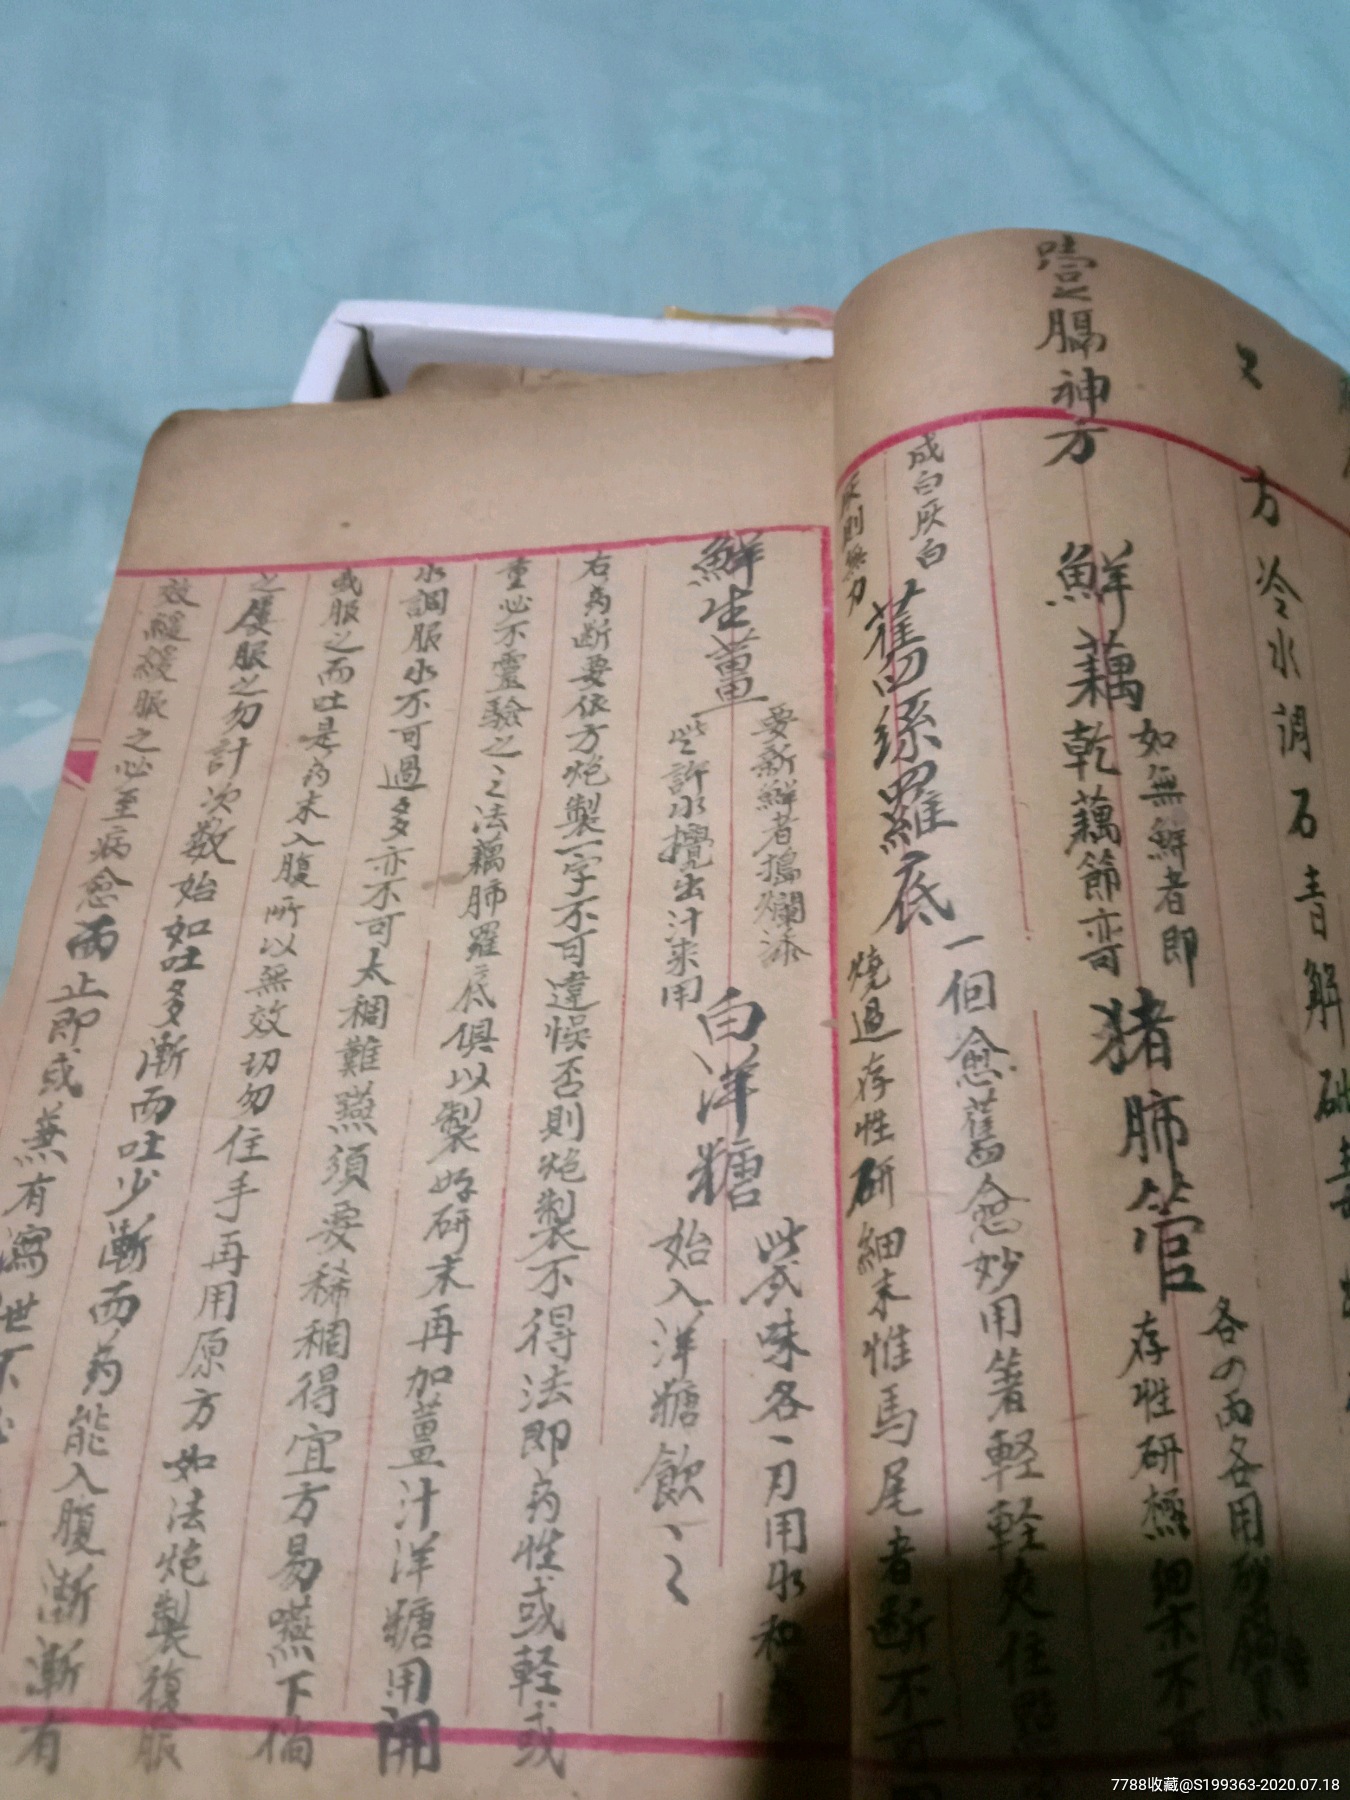 又方冷水调石青解
膈神方
鮮藕
如無鮮者即
乾藕節亦可
猪肺管
各の両各用砂鍋
存性研極細末不可
一個愈舊愈妙用箸軽軽夾住
成白灰白
灰則無力
舊絲羅底
燒過存性研細末惟馬尾者断不可
鮮生薑
要新鮮者搗爛添
些許水攪出汁来用
白洋糖
此弍味各一刀用水和
始入洋糖飲之
右药断要依方炮製一字不可違悞否則炮製不得法即药性或軽或
重必不靈驗之之法藕肺羅底俱以製好研末再加薑汁洋糖用開
水調服水不可過多亦不可太稠難嚥須要稀稠得宜方易嚥下倘
或服之而吐是药未入腹所以無效切勿住手再用原方如法炮製復服
之屢服之勿計次数始如吐多漸而吐少漸而药能入腹漸漸有
效緩緩服之必至病愈而止即或無有瀉